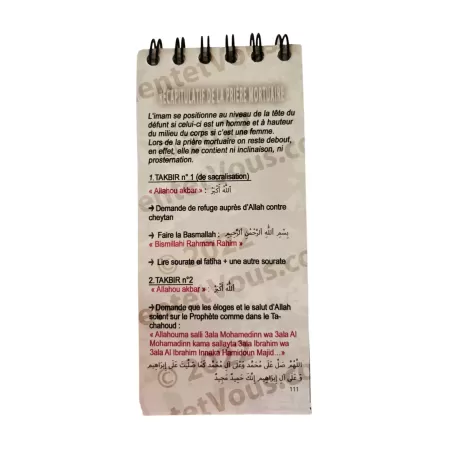 RÉCAPITULATIF DE LA PRIÈRE MORTUAIRE
L'imam se positionne au niveau de la tête du
défunt si celui-ci est un homme et à hauteur
du milieu du corps si c'est une femme.
Lors de la prière mortuaire on reste debout,
en effet, elle ne contient ni inclinaison, ni
prosternation.
1.TAKBIR n° 1 (de sacralisation)
« Allahou akbar » : اَللهُ أَكْبَرُ
→ Demande de refuge auprès d'Allah contre
cheytan
→ Faire la Basmallah : بِسْمِ اللهِ الرَّحْمٰنِ الرَّحِيمِ
« Bismillahi Rahmani Rahim »
→ Lire sourate el fatiha + une autre sourate
2.TAKBIR n°2
« Allahou akbar » : اَللهُ أَكْبَرُ
→ Demande que les éloges et le salut d'Allah
soient sur le Prophète comme dans le Ta-
chahoud :
« Allahouma salli 3ala Mohamedinn wa 3ala Al
Mohamadinn kama sallayta 3ala Ibrahim wa
3ala Al Ibrahim Innaka Hamidoun Majid... »
اللَّهُمَّ صَلِّ عَلَى مُحَمَّدٍ وَعَلَى آلِ مُحَمَّدٍ كَمَا صَلَّيْتَ عَلَى إِبْرَاهِيمَ
وَ عَلَى آلِ إِبْرَاهِيمَ إِنَّكَ حَمِيدٌ مَجِيدٌ
111